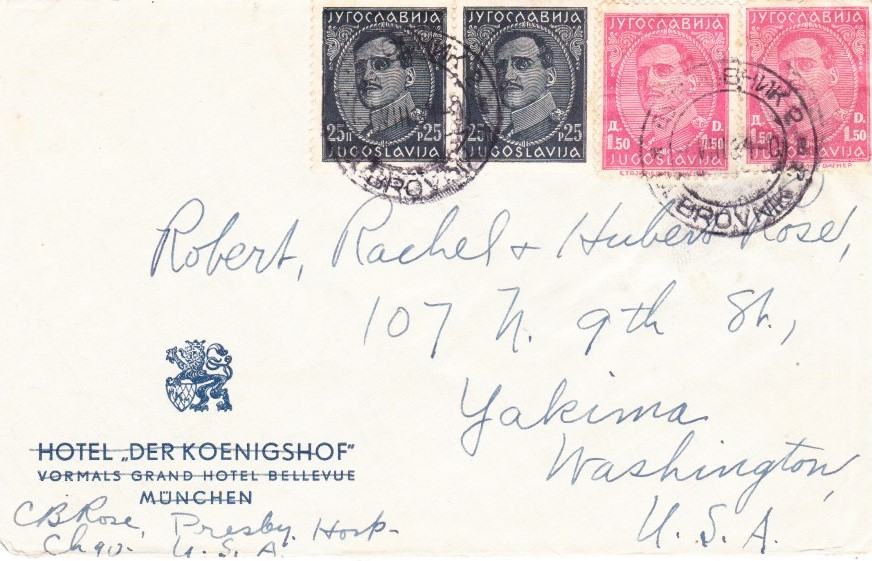 ЈУГОСЛАВИЈА ЈУГОСЛАВИЈА ЈУГОСЛАВИЈА ЈУГОСЛАВИЈА
25П P25 25П P25 Д. 1.50 D. 1.50 1.50 D. 1.50
JUGOSLAVIJA JUGOSLAVIJA JUGOSLAVIJA JUGOSLAVIJA
ВНИК 2
BROVNIK
BROVNIK
Robert, Rachel & Hubert Rose,
107 N. 9th St.,
Yakima
Washington,
U.S.A.
HOTEL „DER KOENIGSHOF"
VORMALS GRAND HOTEL BELLEVUE
MÜNCHEN
CB Rose, Presby. Hosp.
Chgo. U.S.A.